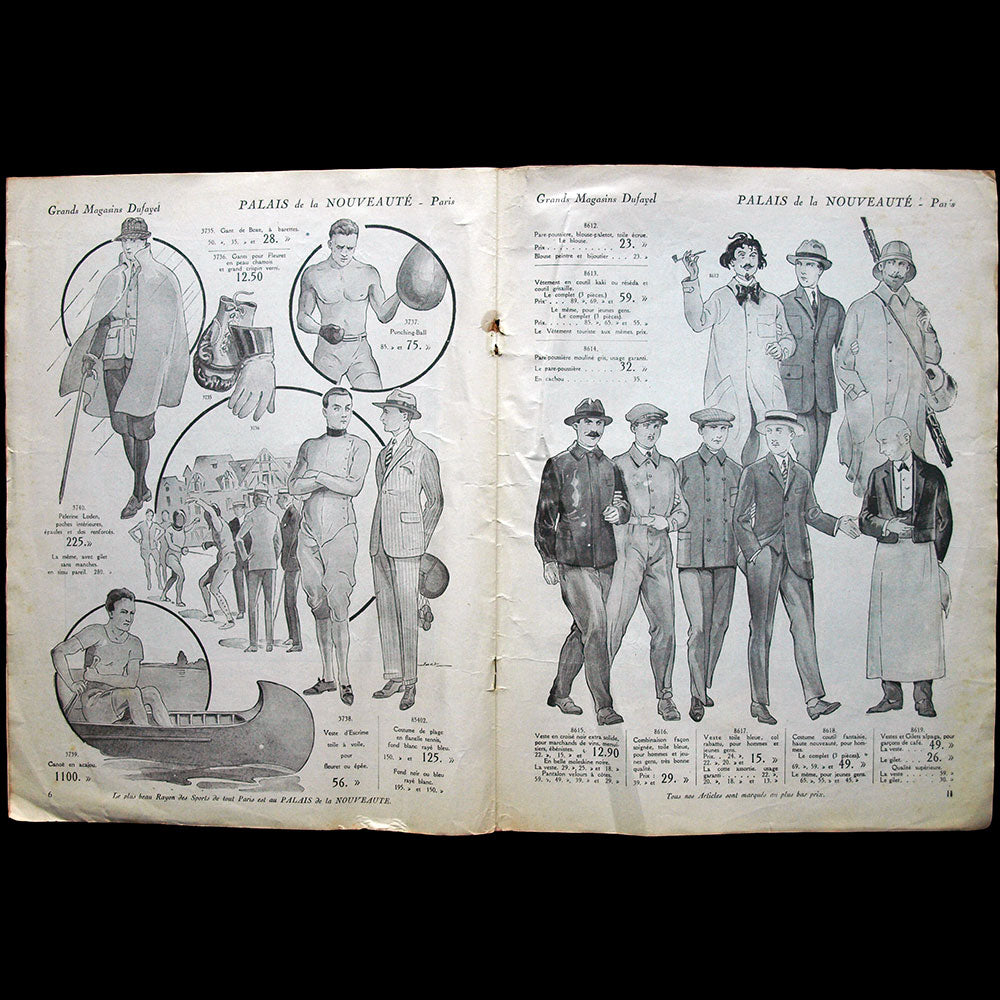 Grands Magasins Dufayel PALAIS de la NOUVEAUTÉ - Paris
3735. Gant de Boxe, à barettes.
50. », 35. » et 28. »
3736. Gants pour Fleuret
en peau chamois
et grand crispin verni.
12.50
3737.
Punching-Ball
85. » et 75. »
3735
3736
3740.
Pelerine Loden,
poches intérieures,
épaules et dos renforcés.
225.»
La même, avec gilet
sans manches
en tissu pareil. 280. »
3739.
Canoë en acajou.
1100. »
3738.
Veste d'Escrime
toile à voile,
pour
fleuret ou épée.
56. »
85402.
Costume de plage
en flanelle tennis,
fond blanc rayé bleu.
150. » et 125. »
Fond noir ou bleu
rayé blanc.
195. » et 150. »
6 Le plus beau Rayon des Sports de tout Paris est au PALAIS de la NOUVEAUTE.
Grands Magasins Dufayel PALAIS de la NOUVEAUTÉ - Paris
8612.
Pare-poussière, blouse-paletot, toile écrue.
Le blouse.
Prix 23. »
Blouse peintre et bijoutier . . . . 23. »
8613.
Vêtement en coutil kaki ou réséda et
coutil grisaille.
Le complet (3 pièces.)
Prix . . . . 89. », 69. » et 59. »
Le même, pour jeunes gens.
Le complet (3 pièces).
Prix. . . . . . 85. », 65. » et 55. »
Le Vêtement touriste aux mêmes prix.
8614.
Pare-poussière mouliné gris, usage garanti.
Le pare-poussière. . . . 32. »
En cachou . . . . . 35. »
8612
8615.
Veste en croisé noir extra solide,
pour marchands de vins, menui-
siers, ébénistes.
22. », 15. » et 12.90
En belle moleskine noire.
La veste. 29. », 25. » et 18. »
Pantalon velours à côtes.
59. », 49. », 39. » et 29. »
8616.
Combinaison façon
soignée, toile bleue,
pour hommes et jeu-
nes gens, très bonne
qualité.
Prix :
39. » et 29. »
8617.
Veste toile bleue, col
rabattu, pour hommes et
jeunes gens.
Prix . 24. »,
22. », 20. » et 15. »
La cotte assortie, usage
garanti . . . . . 22. »,
20. », 18. » et 13. »
8618.
Costume coutil fantaisie,
haute nouveauté, pour hom-
mes.
Le complet (3 pièces).
69. », 59. » et 49. »
Le même, pour jeunes gens.
65. », 55. » et 45. »
8619.
Vestes et Gilets alpaga, pour
garçons de café.
La veste. . . 49. »
Le gilet. . . 26. »
Qualité supérieure.
La veste . . . . . 59. »
Le gilet . . . . . 30. »
Tous nos Articles sont marqués en plus bas prix.